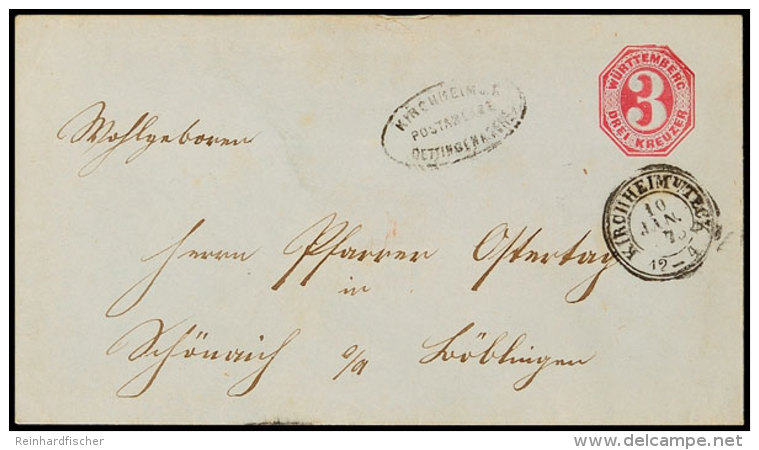 WÜRTTEMBERG
3
DREI KREUZER
KIRCHHEIM
POSTABLAGE
OETTINGEN
KIRCHHEIM U/TECK
10
JAN.
12-4
Wohlgeboren
Herrn Pfarrer Ostertag
in
Schönaich o/a Böblingen
Reinhardfischer
delcampe.net